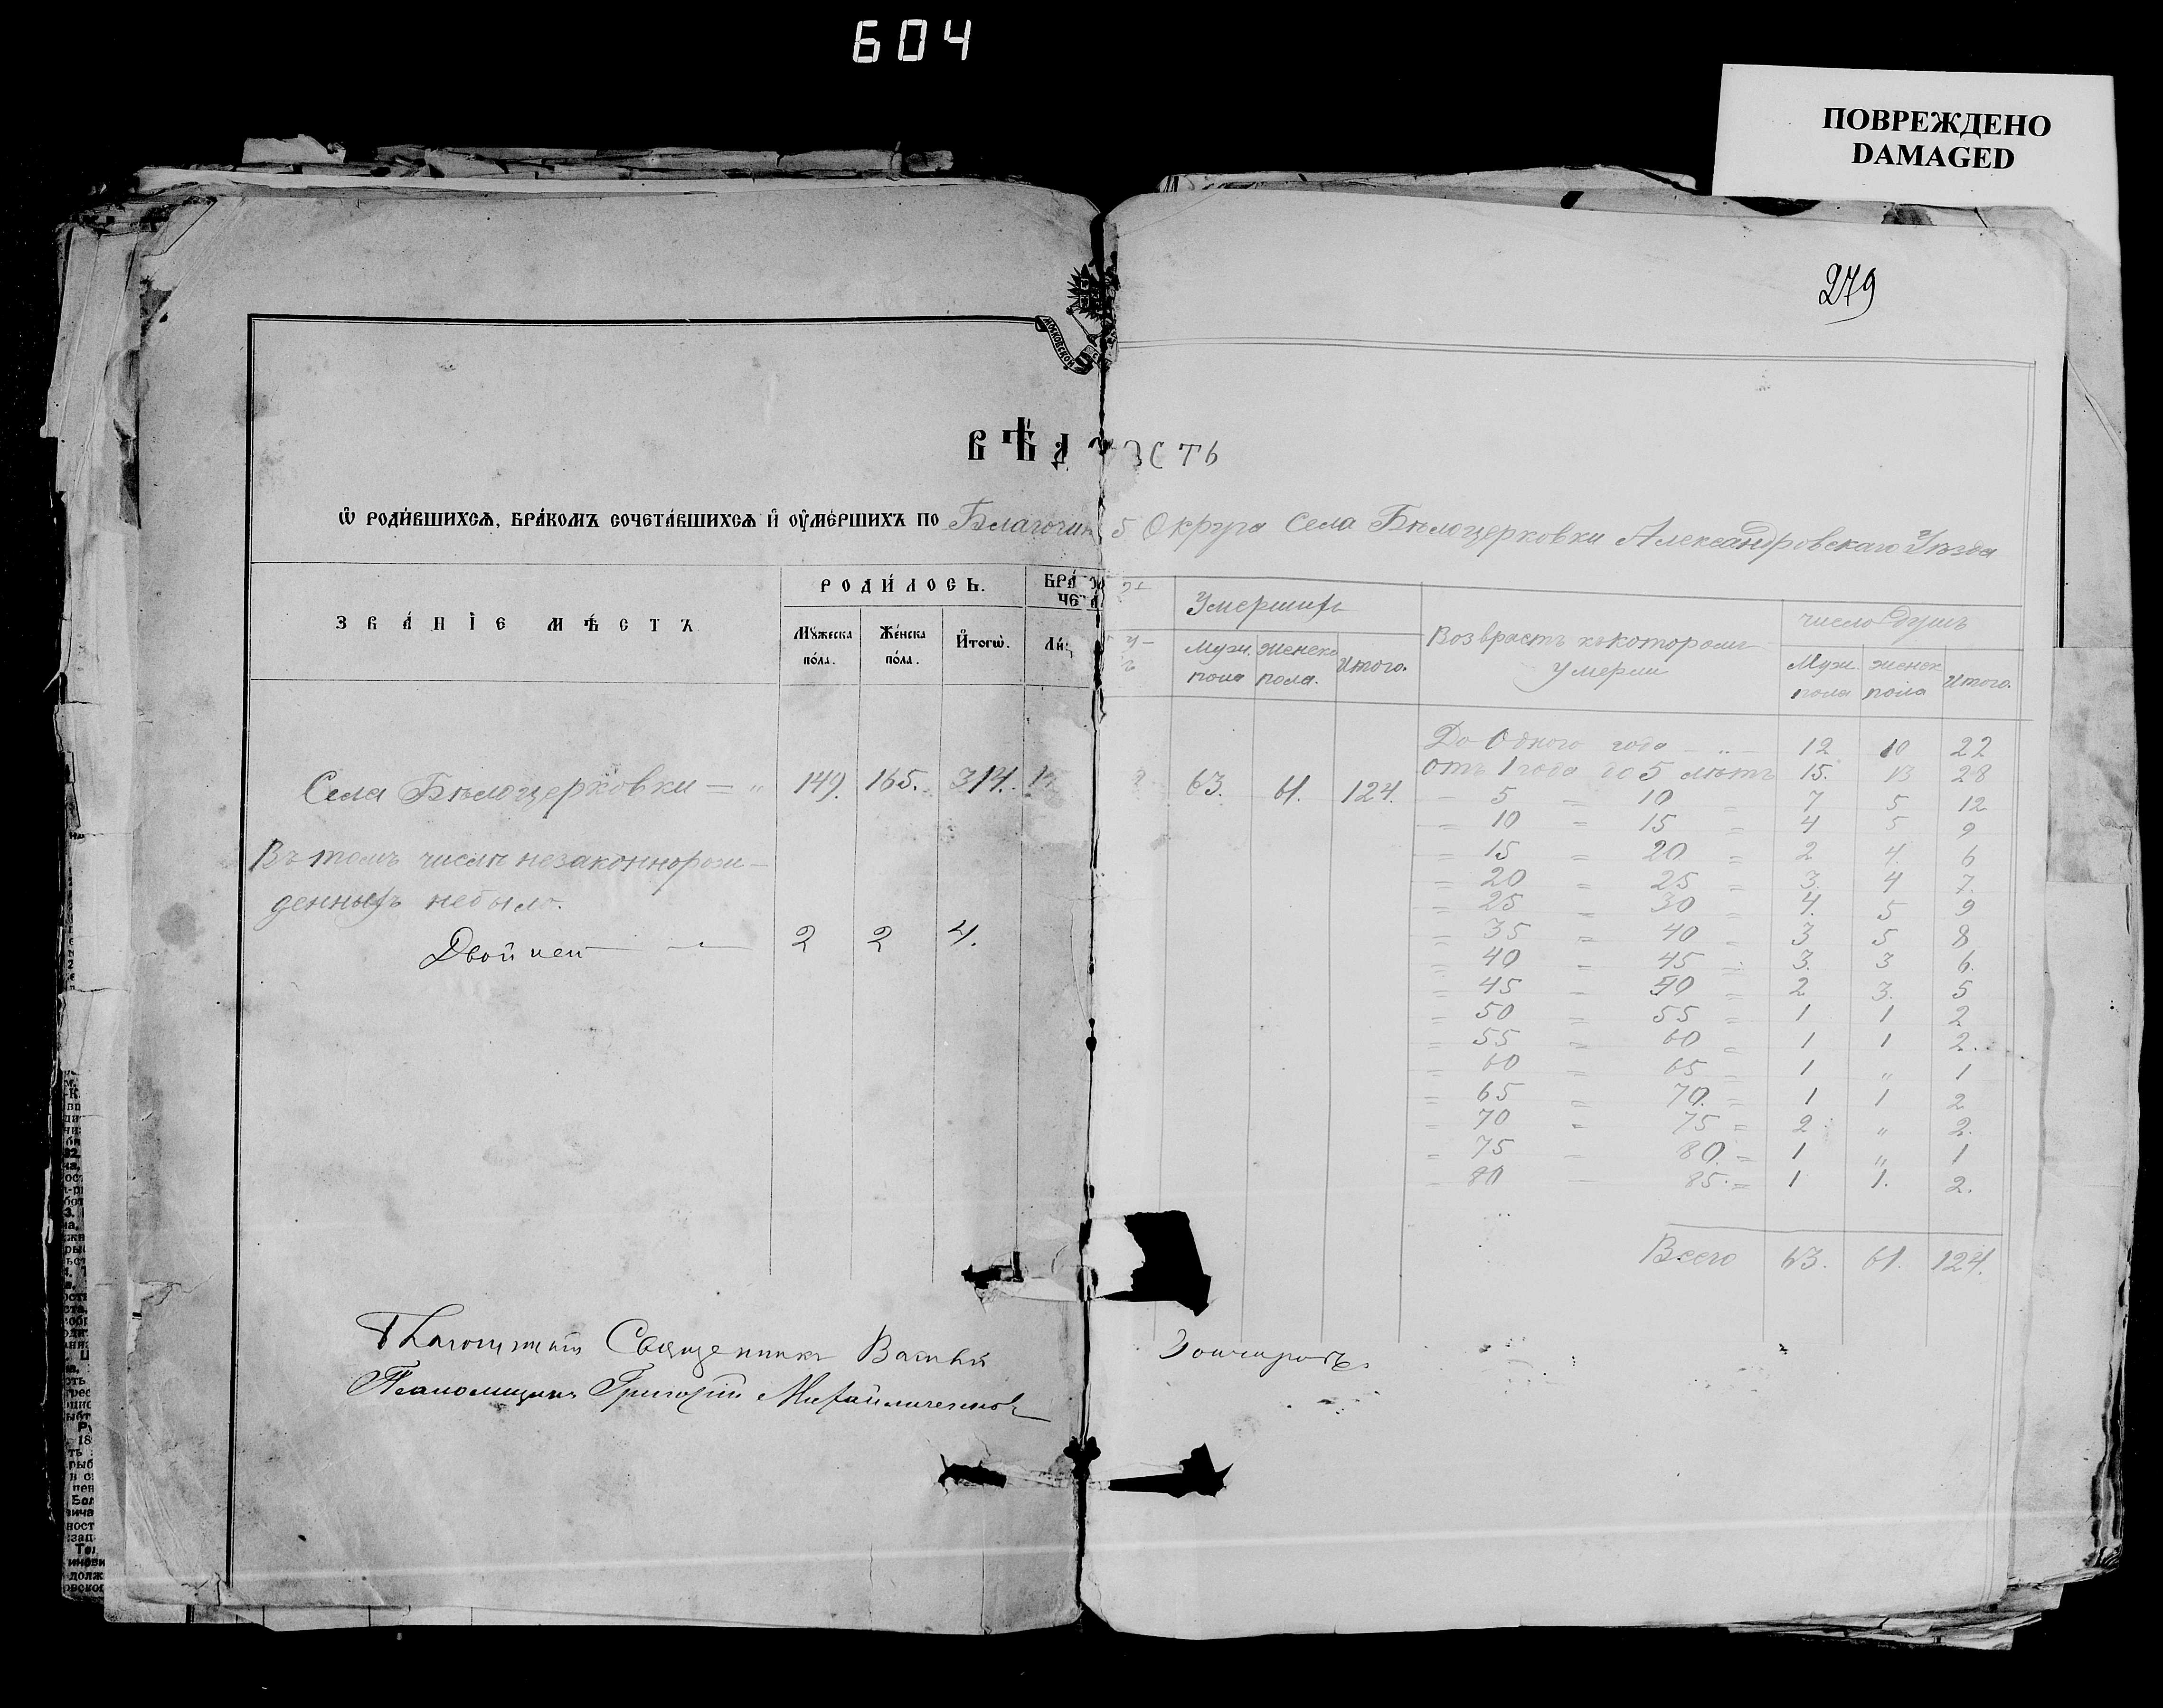 604
ПОВРЕЖДЕНО
DAMAGED
279
МОСКОВСКОЙ
ВѢД ОСТЬ
Ѡ РОДИ́ВШИХСѦ, БРА́КОМЪ СОЧЕТА́ВШИХСѦ И҆ ОУ҆МЕ́РШИХЪ ПО Благочин 5 Округа Села Бѣлоцерковки Александровскаго Уѣзда
ЗВА́НІЕ МѢ́СТЪ
РОДИ́ЛОСЬ.
БРА
ЧЕТ
Умершихъ
Возврастъ въ которомъ умерли
число Душъ
Мꙋ́жеска по́ла.
Же́нска по́ла.
И҆тогѡ̀.
Муж. пола
женск пола.
Итого.
Муж. пола
женск пола
Итого.
Села Бѣлоцерковки = „ 149. 165. 314.
63. 61. 124.
Въ томъ числѣ незаконнорож-
денныхъ небыло.
Двойней — 2 2 4.
До Одного года — „ — 12 10 22
Отъ 1 года до 5 лѣтъ 15. 13 28
= 5 = 10 = 7 5 12
= 10 = 15 = 4 5 9
= 15 = 20 = 2 4. 6
= 20 = 25 = 3. 4 7.
= 25 = 30 = 4. 5 9
= 35 = 40 = 3 5 8
= 40 = 45 = 3. 3 6.
= 45 = 50 = 2 3. 5
= 50 = 55 = 1 1 2
= 55 = 60 = 1 1 2.
= 60 = 65 = 1 „ 1
= 65 = 70. = 1 1 2
= 70 = 75 = 2 „ 2.
= 75 = 80. = 1 „ 1
= 80 — 85. = 1 1. 2.
Всего 63. 61. 124.
Благочинный Священникъ Гончаровъ.
Псаломщикъ Григорій Михайличенко